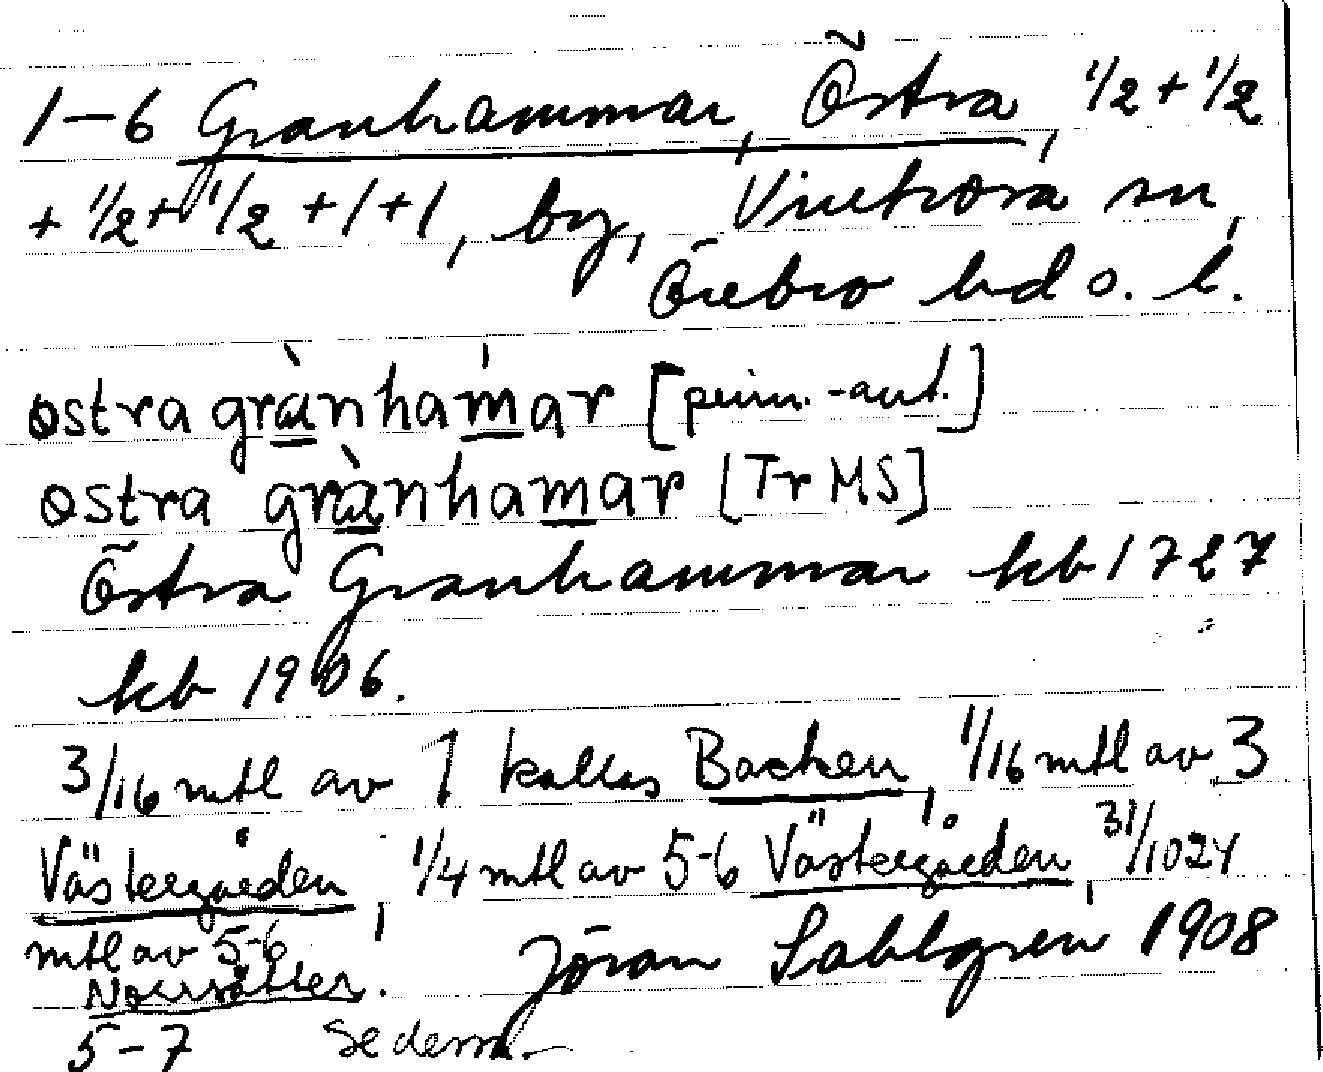 1–6 Granhammar, Östra, 1/2 + 1/2
+ 1/2 + 1/2 + 1 + 1, by, Vintrosa sn,
Örebro hd o. l.
østra grànhámar [prim.-aut.]
østra grànhamar [Tr MS]
Östra Granhammar kb 1727
kb 1906.
3/16 mtl av 1 kallas Backen, 1/16 mtl av 3
Västergården, 1/4 mtl av 5-6 Västergården, 31/1024
mtl av 5-6 Jöran Sahlgren 1908
Norrsätter.
5–7 Se dem.